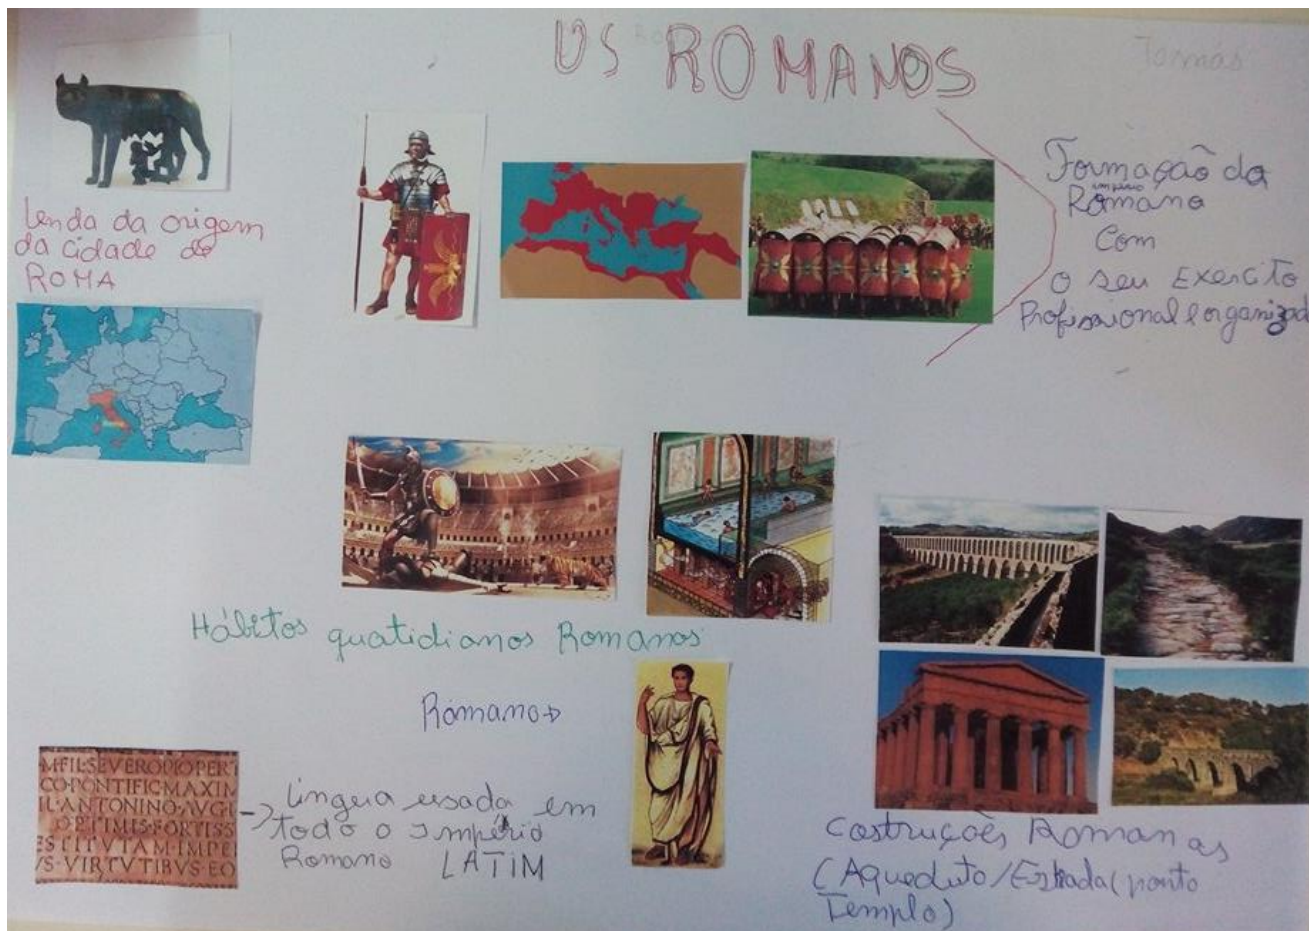 OS ROMANOS
Tomás
Lenda da origem
da cidade de
ROMA
Formação da
império
Romano
Com
o seu Exercito
Profissional e organizado
Hábitos quatidianos Romanos
Romano
MFIL·SEVERO·PIO·PERT
CO·PONTIFIC·MAXIM
IL·ANTONINO·AVGV
OPTIMIS·FORTISS
ESTITVTAM·IMPE
VS·VIRTVTIBVS·EO
Lingua usada em
todo o Império
Romano LATIM
Costruções Romanas
(Aqueduto/Estrada(ponto
Templo)